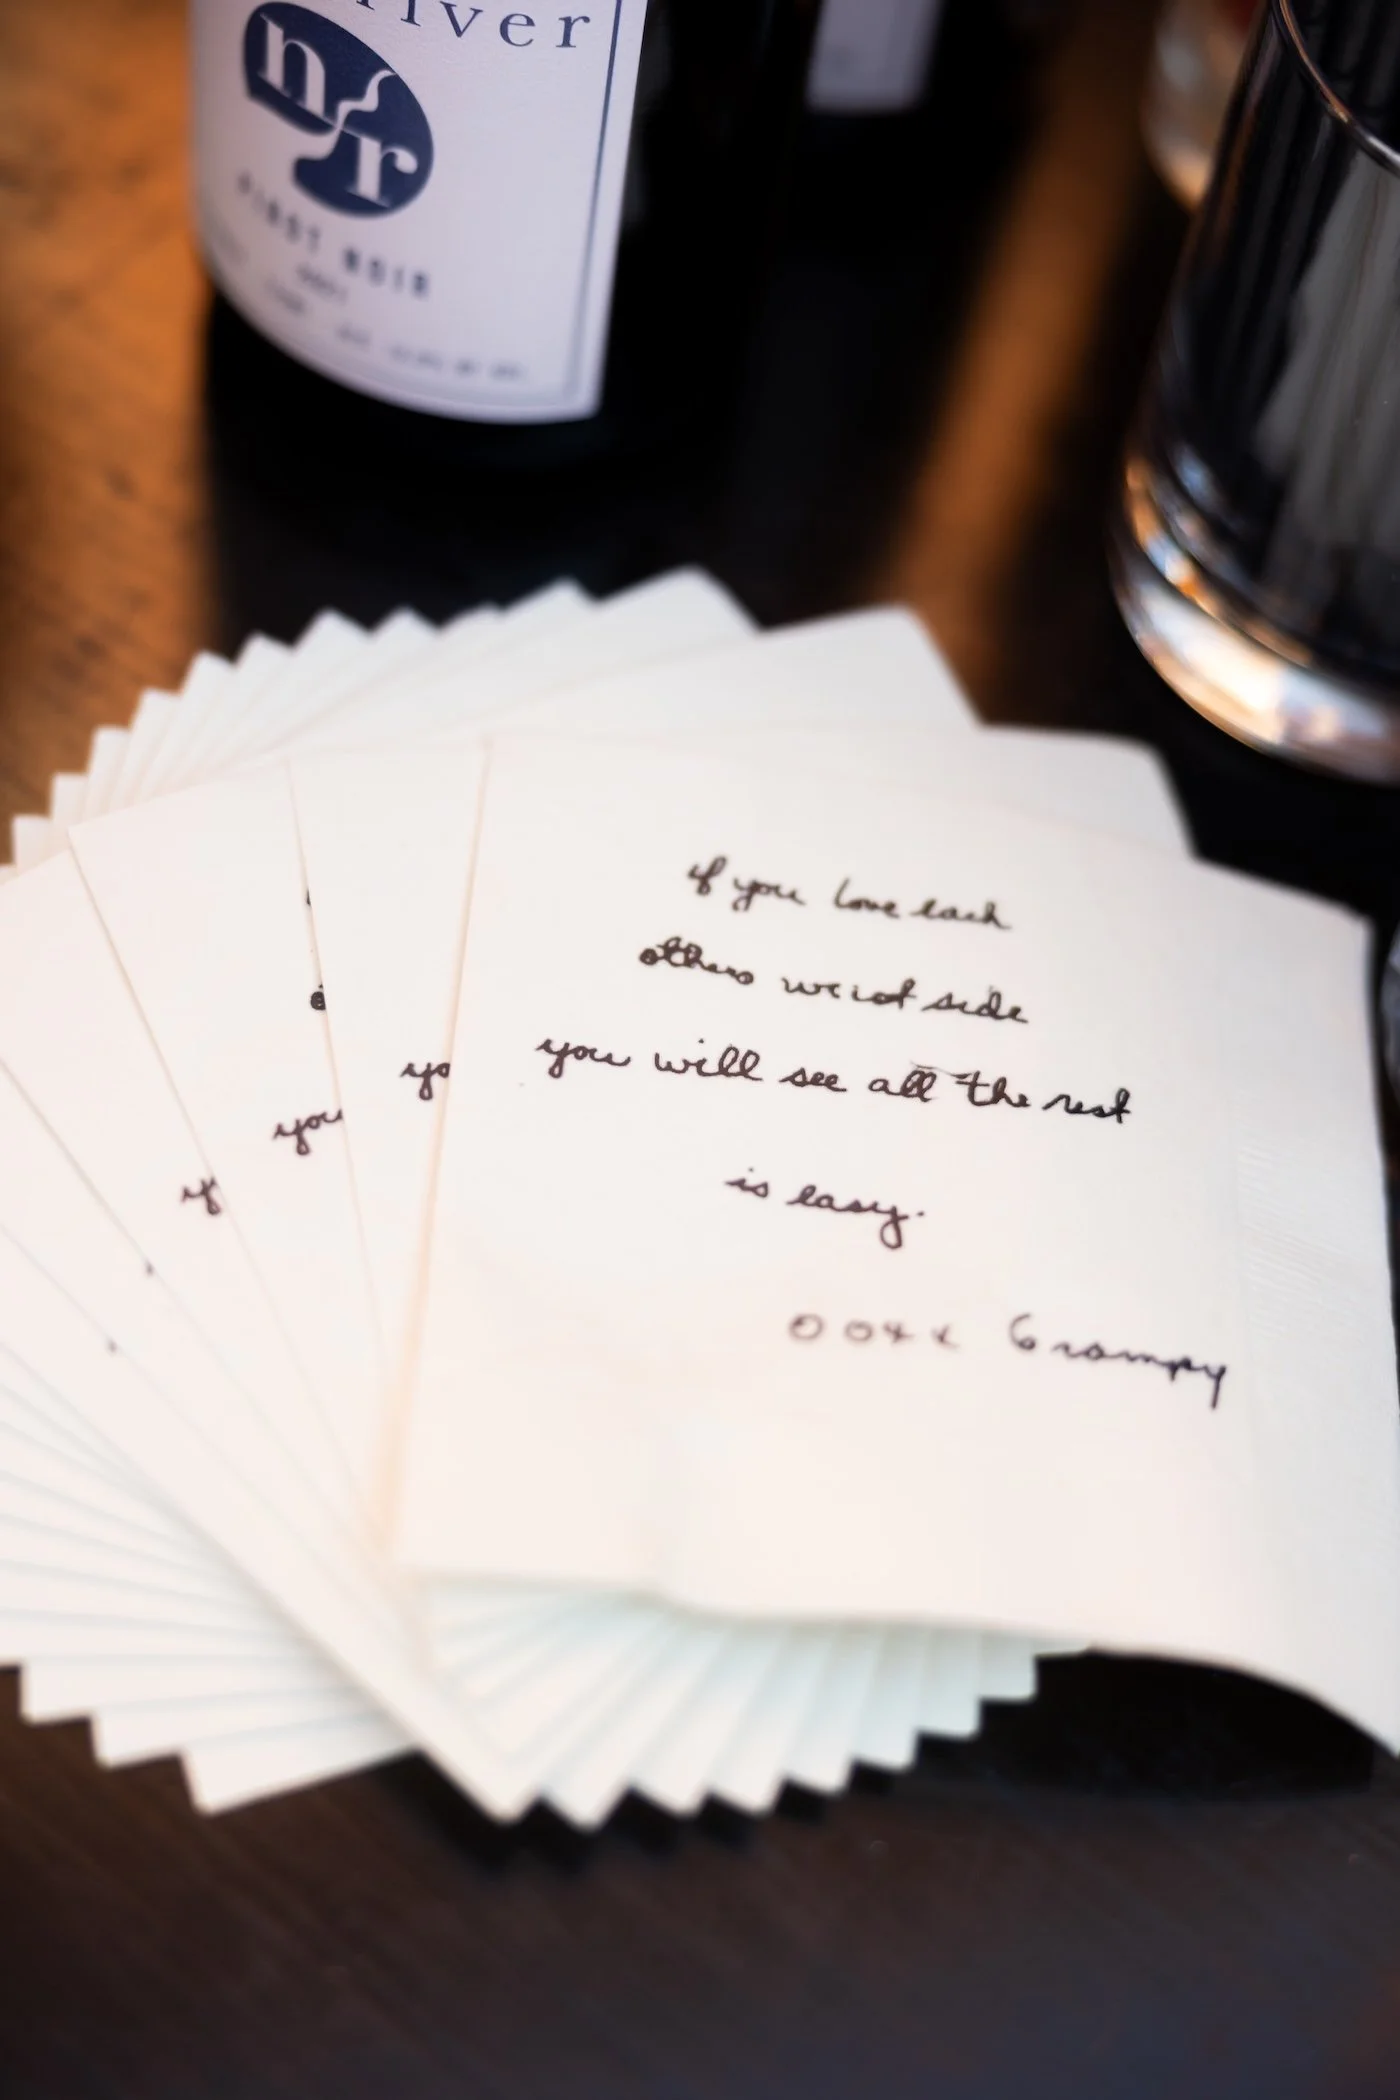 iver
n
r
PINOT NOIR
if you love each
others weird side
you will see all the rest
is easy.
o o x x Grampy
yo
you
if